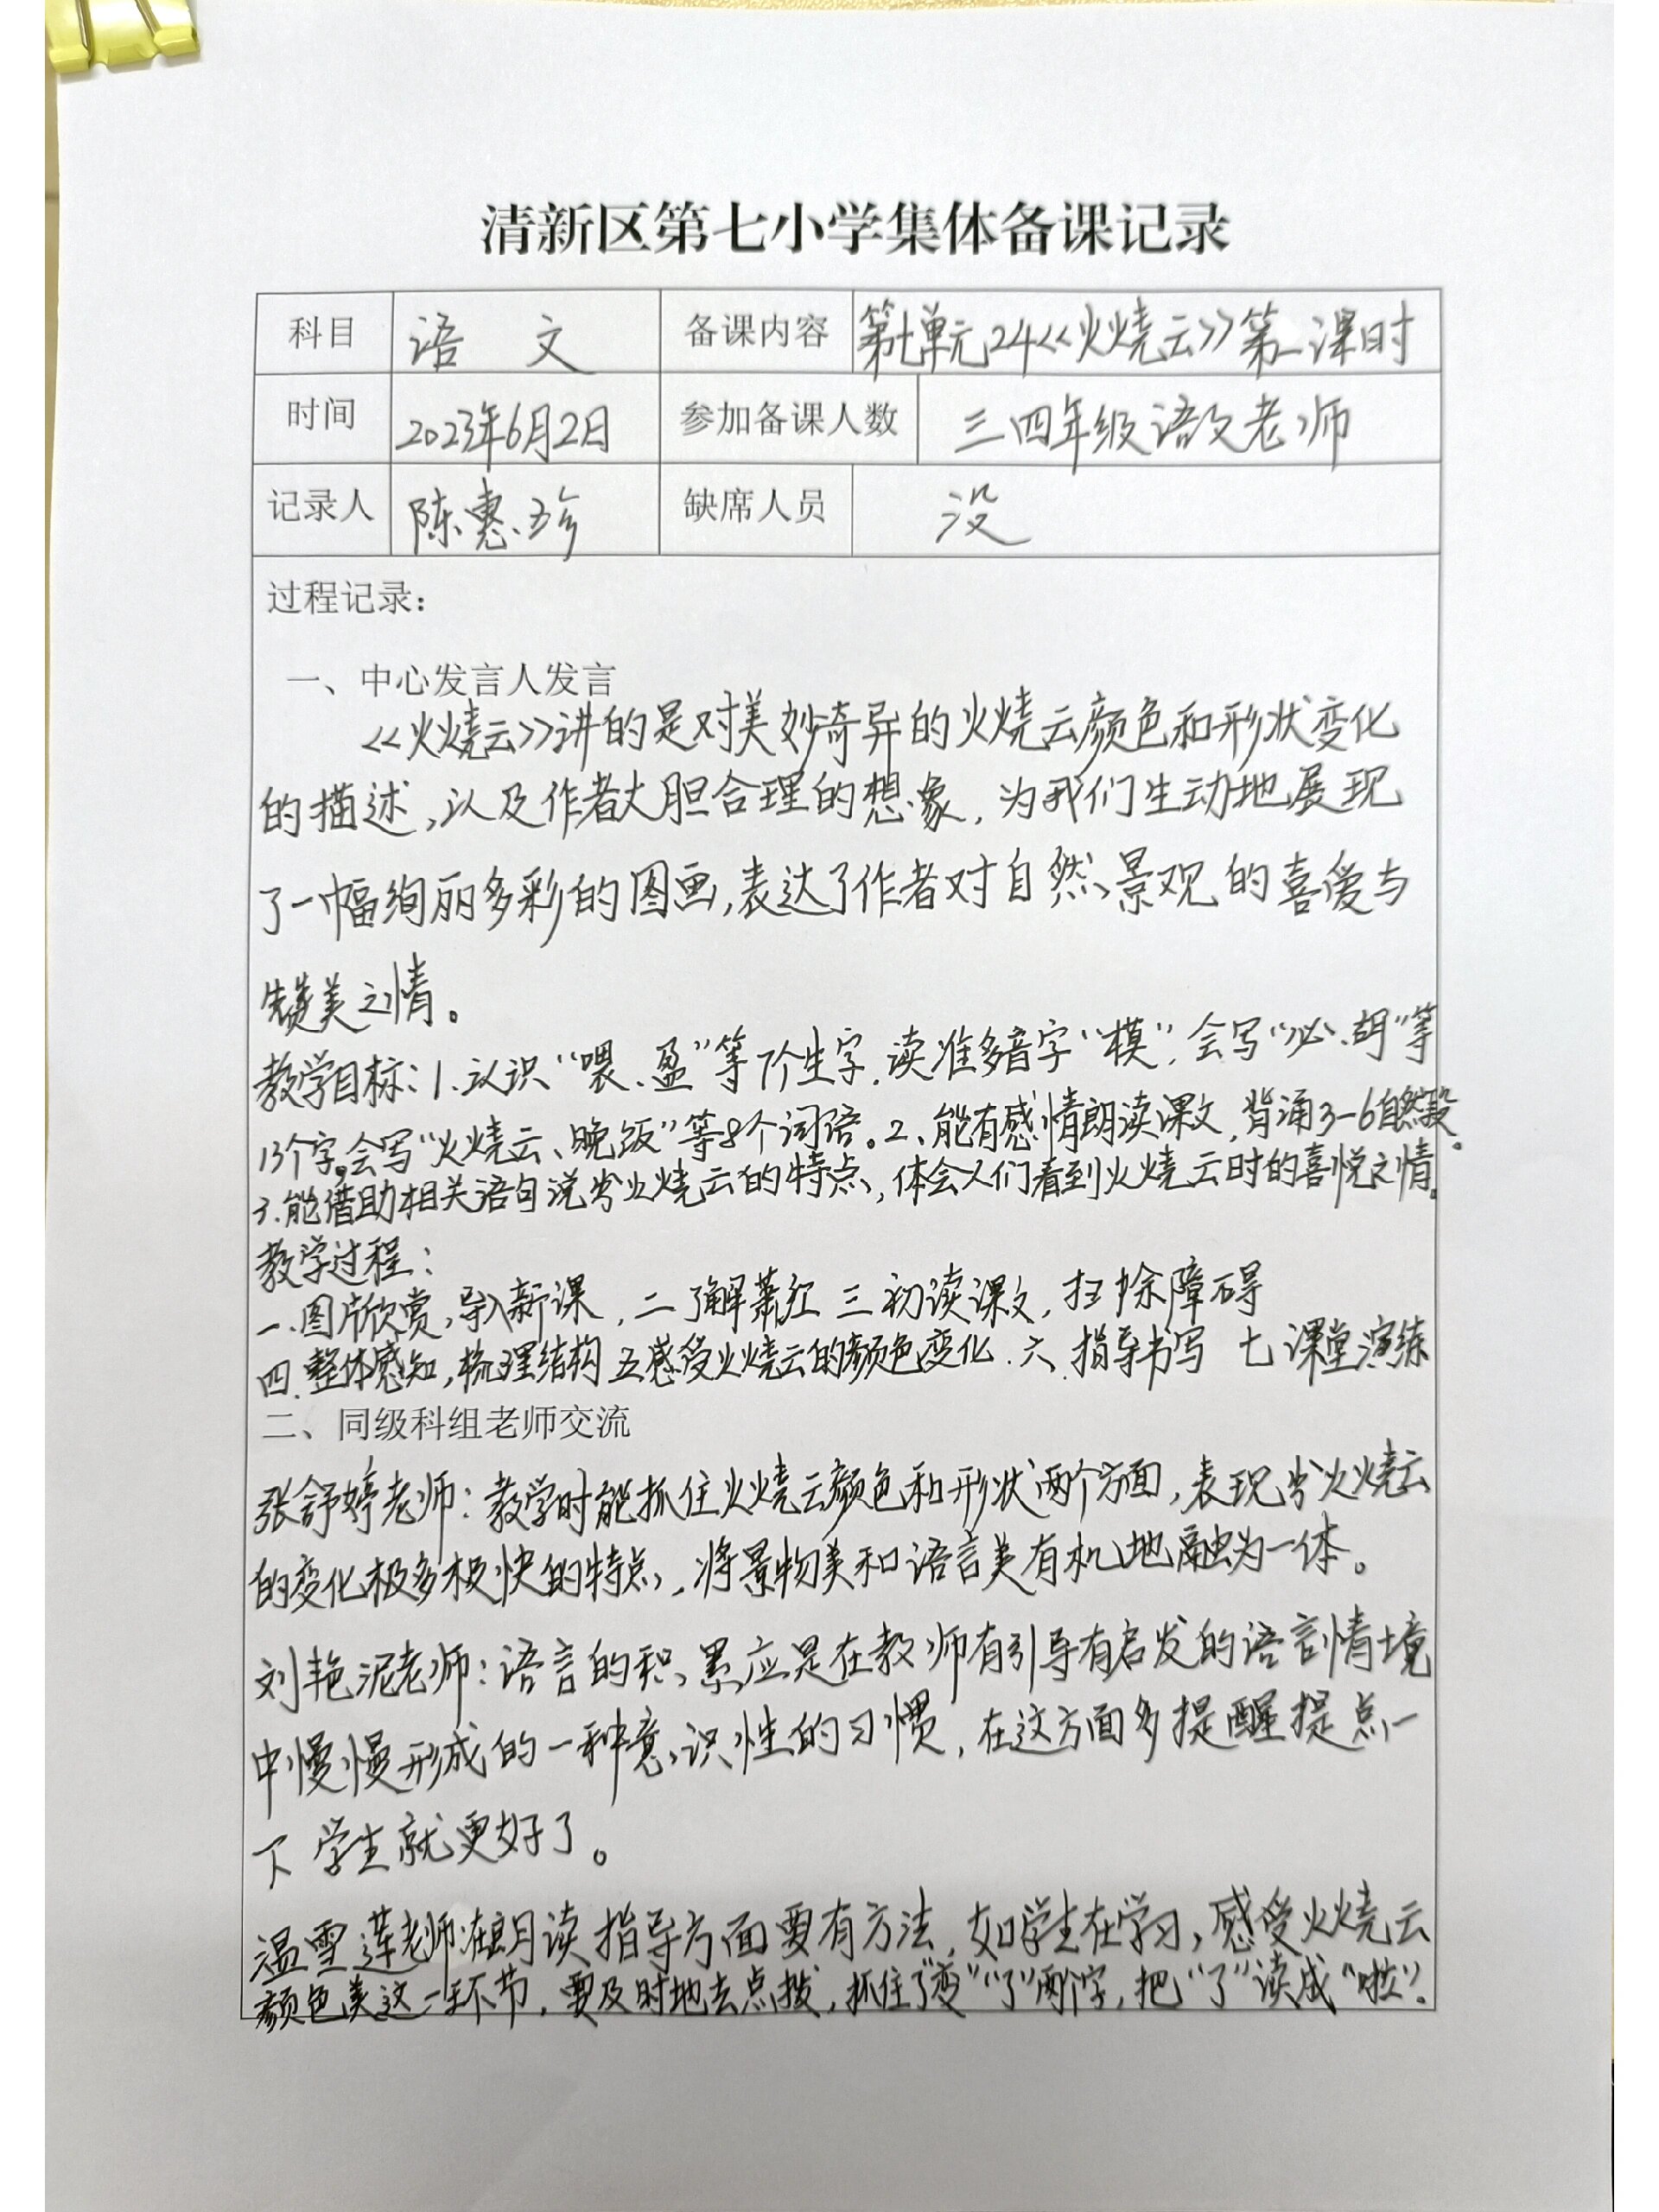 清新区第七小学集体备课记录
科目 语 文 备课内容 第七单元24<<火烧云>>第一课时
时间 2023年6月2日 参加备课人数 三四年级语文老师
记录人 陈惠珍 缺席人员 没
过程记录：
一、中心发言人发言
<<火烧云>>讲的是对美妙奇异的火烧云颜色和形状变化
的描述，以及作者大胆合理的想象，为我们生动地展现
了一幅绚丽多彩的图画，表达了作者对自然景观的喜爱与
赞美之情。
教学目标：1.认识“喂、盈”等7个生字.读准多音字“模”，会写“必、胡”等
13个字。会写“火烧云、晚饭”等8个词语。2、能有感情朗读课文，背诵3-6自然段。
3.能借助相关语句说出火烧云的特点，体会人们看到火烧云时的喜悦之情。
教学过程：
一.图片欣赏，导入新课，二了解萧红 三初读课文，扫除障碍
四.整体感知，梳理结构 五感受火烧云的颜色变化.六.指导书写 七课堂演练
二、同级科组老师交流
张舒婷老师：教学时能抓住火烧云颜色和形状两个方面，表现出火烧云
的变化极多极快的特点，将景物美和语言美有机地融为一体。
刘艳泥老师：语言的积累应是在教师有引导有启发的语言情境
中慢慢形成的一种意识性的习惯，在这方面多提醒提点一
下 学生就更好了。
温雪莲老师:在朗读指导方面要有方法，如学生在学习，感受火烧云
颜色美这一环节，要及时地去点拨，抓住了“变”“了”两个字，把“了”读成“啦”.